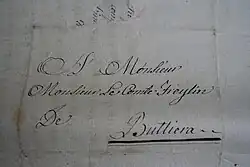 A Monsieur
Monsieur Le Comte Freylin
De
Buttiera